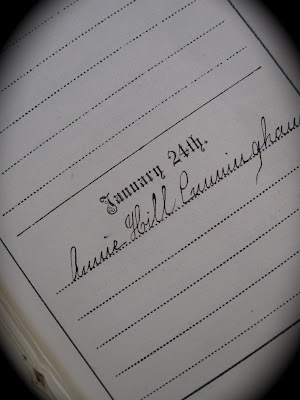 January 24th.
Annie Hill Cunningham